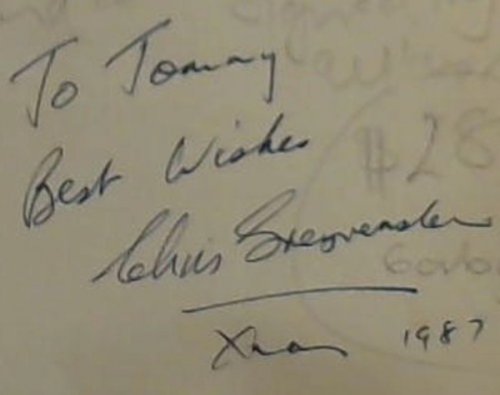 To Tommy
Best Wishes
Chris
Xmas 1987
#28